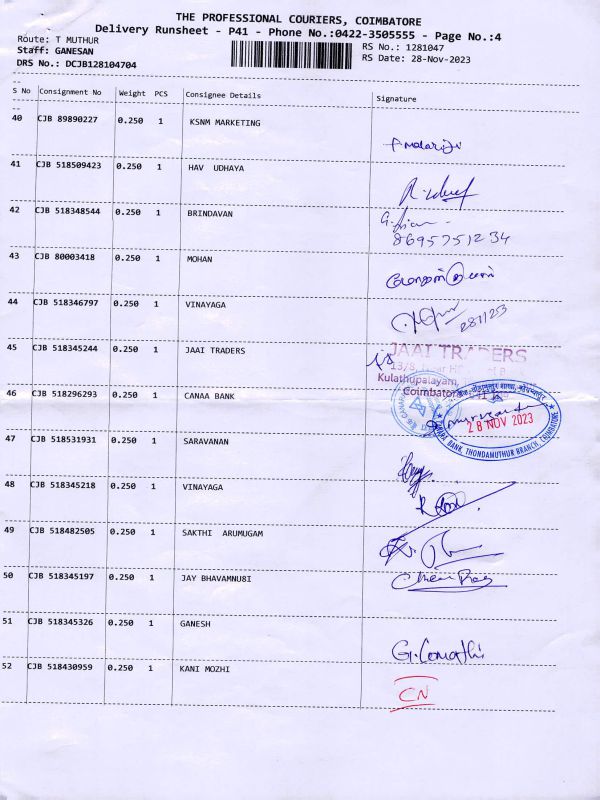 THE PROFESSIONAL COURIERS, COIMBATORE
Delivery Runsheet - P41 - Phone No.:0422-3505555 - Page No.:4
Route: T MUTHUR
RS No.: 1281047
Staff: GANESAN
RS Date: 28-Nov-2023
DRS No.: DCJB128104704
S No Consignment No Weight PCS Consignee Details Signature
40 CJB 89890227 0.250 1 KSNM MARKETING
41 CJB 518509423 0.250 1 HAV UDHAYA
42 CJB 518348544 0.250 1 BRINDAVAN
8695751234
43 CJB 80003418 0.250 1 MOHAN
44 CJB 518346797 0.250 1 VINAYAGA
281123
45 CJB 518345244 0.250 1 JAAI TRADERS
JAAI TRADERS
Kulathupalayam,
Coimbatore
46 CJB 518296293 0.250 1 CANAA BANK
28 NOV 2023
CANARA BANK, THONDAMUTHUR BRANCH, COIMBATORE
47 CJB 518531931 0.250 1 SARAVANAN
48 CJB 518345218 0.250 1 VINAYAGA
49 CJB 518482505 0.250 1 SAKTHI ARUMUGAM
50 CJB 518345197 0.250 1 JAY BHAVAMNU8I
51 CJB 518345326 0.250 1 GANESH
G. Comathi
52 CJB 518430959 0.250 1 KANI MOZHI
CN